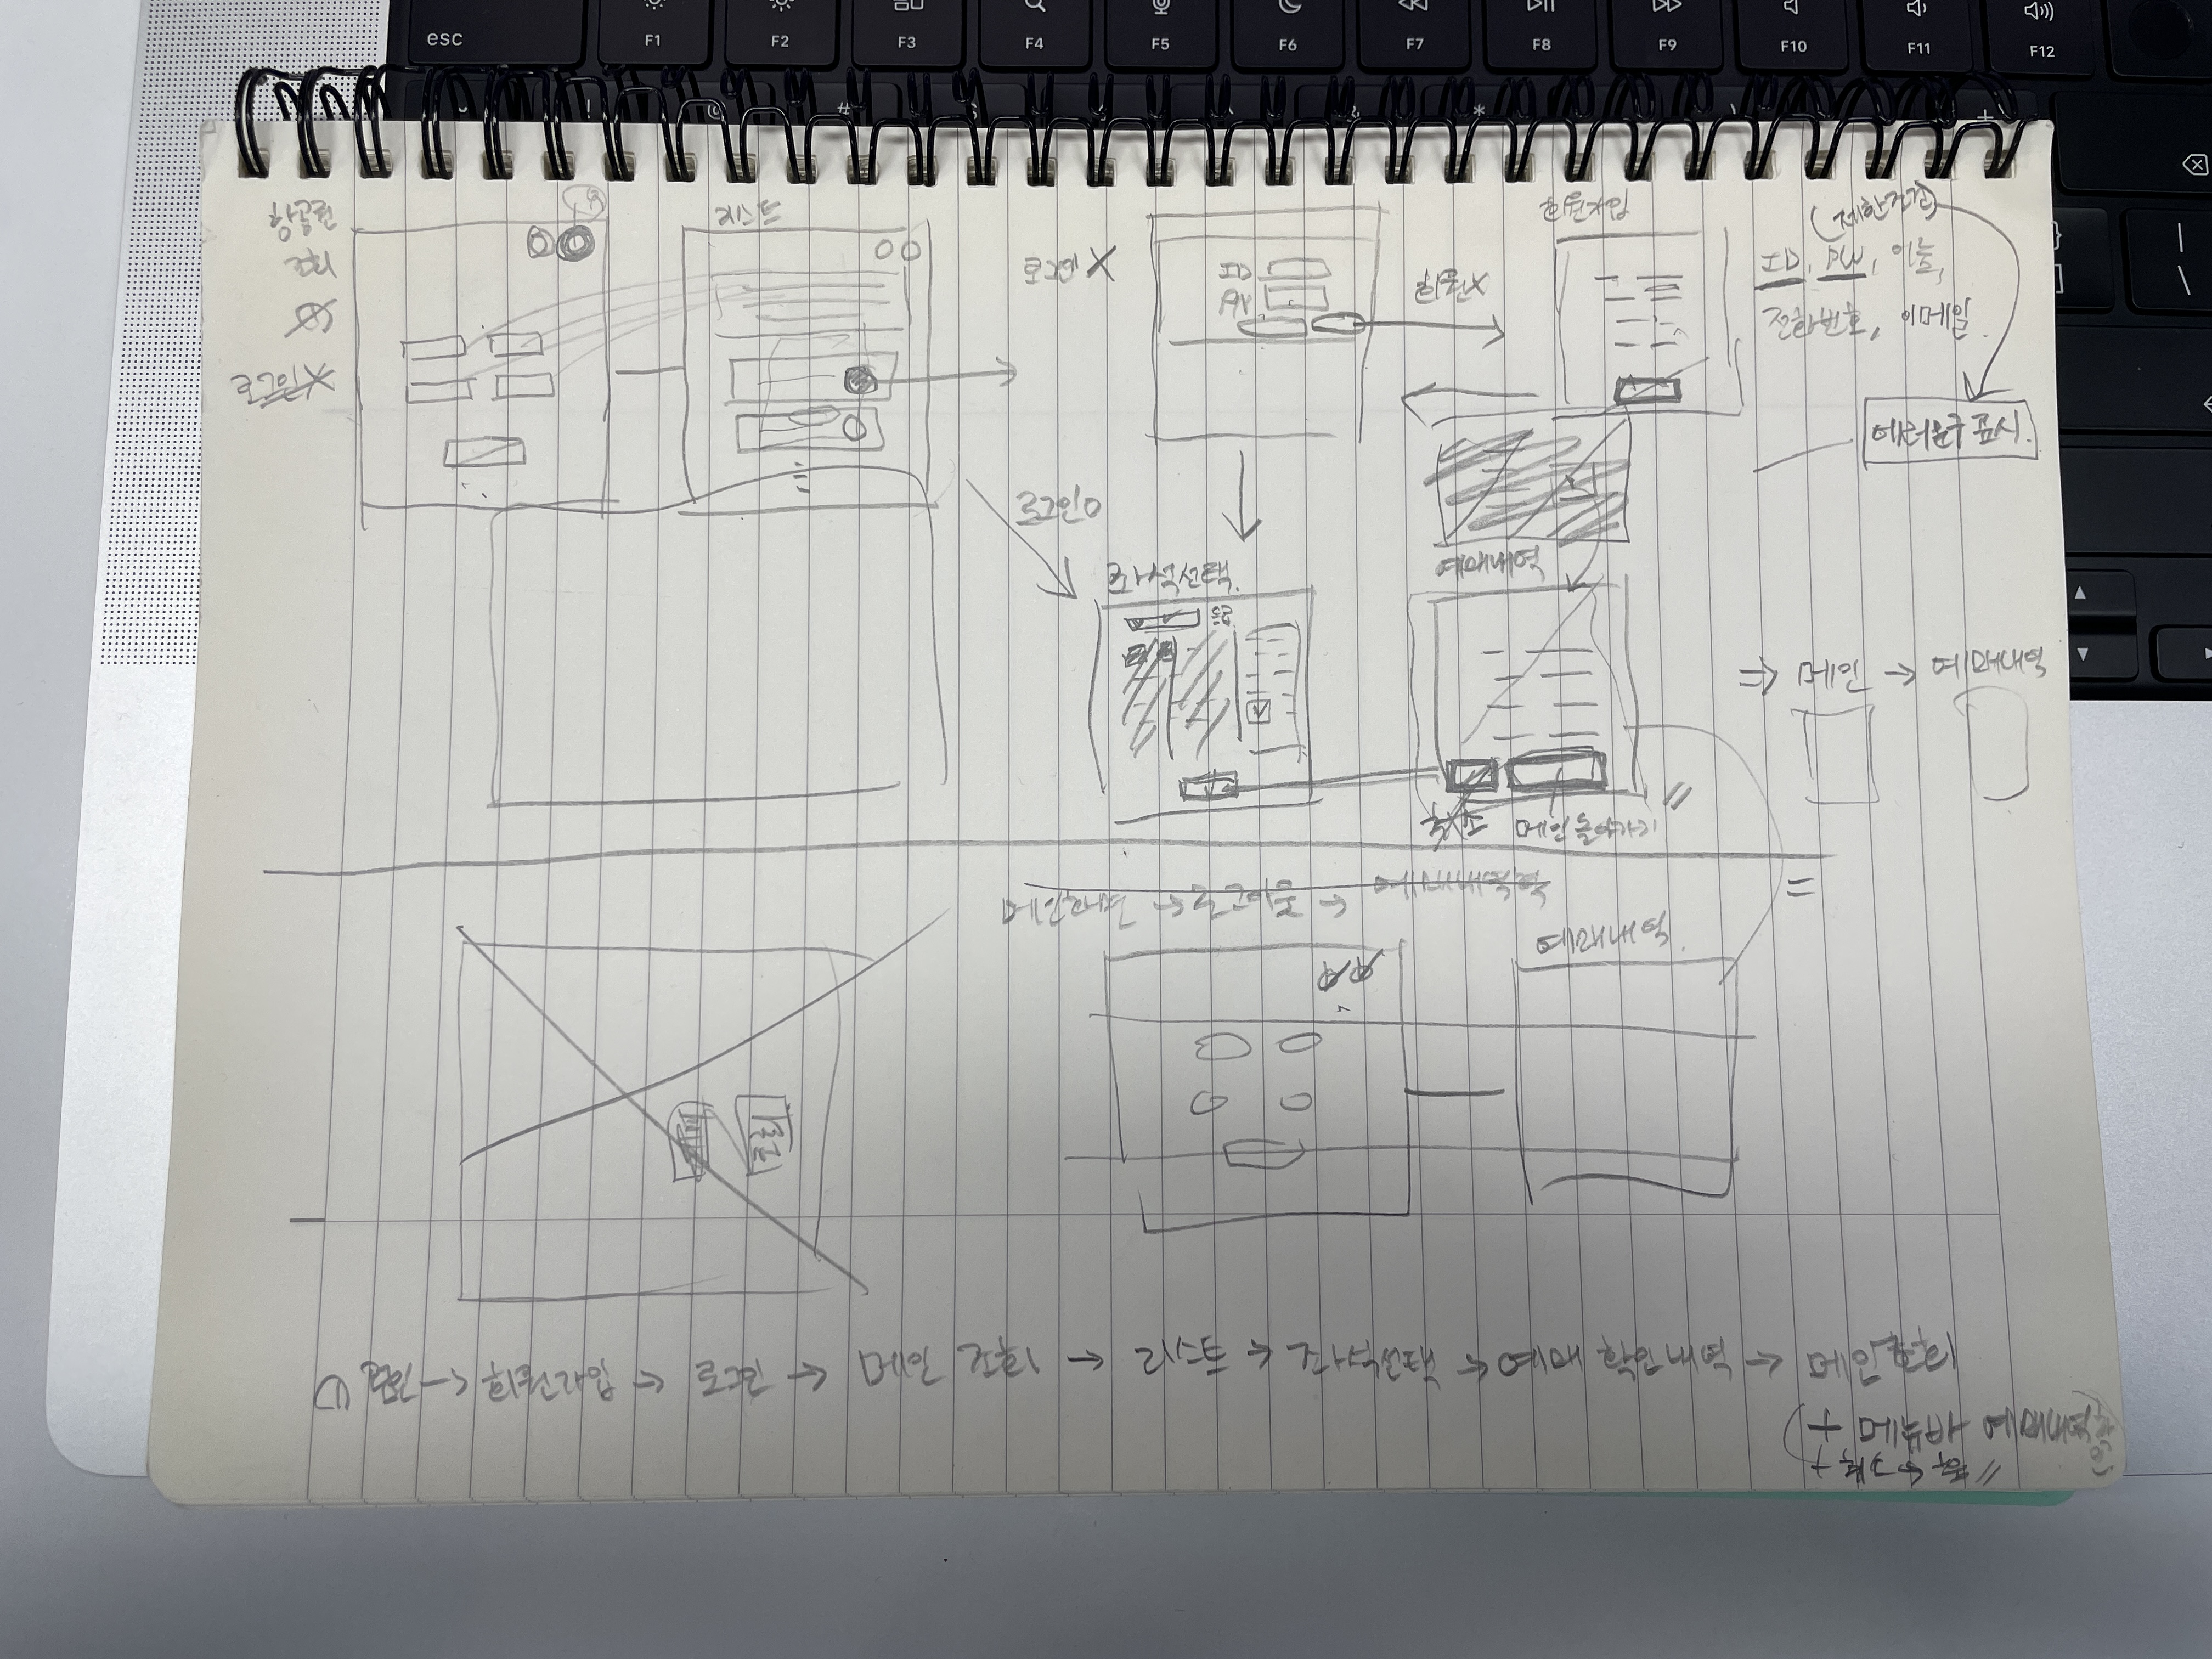 esc F1 F2 F3 F4 F5 F6 F7 F8 F9 F10 F11 F12
항공권
조회
리스트
로그인 X
ID
PW
회원X
회원가입
(제한조건)
ID, PW, 이름,
전화번호, 이메일
에러문구 표시.
로그인 O
좌석선택.
예매내역
⇒ 메인 → 예매내역
취소 메인 돌아가기
메인화면 → 로그아웃 → 예매내역
예매내역.
→ 회원가입 → 로그인 → 메인 조회 → 리스트 → 좌석선택 → 예매 확인내역 → 메인
+ 메뉴바 예매내역